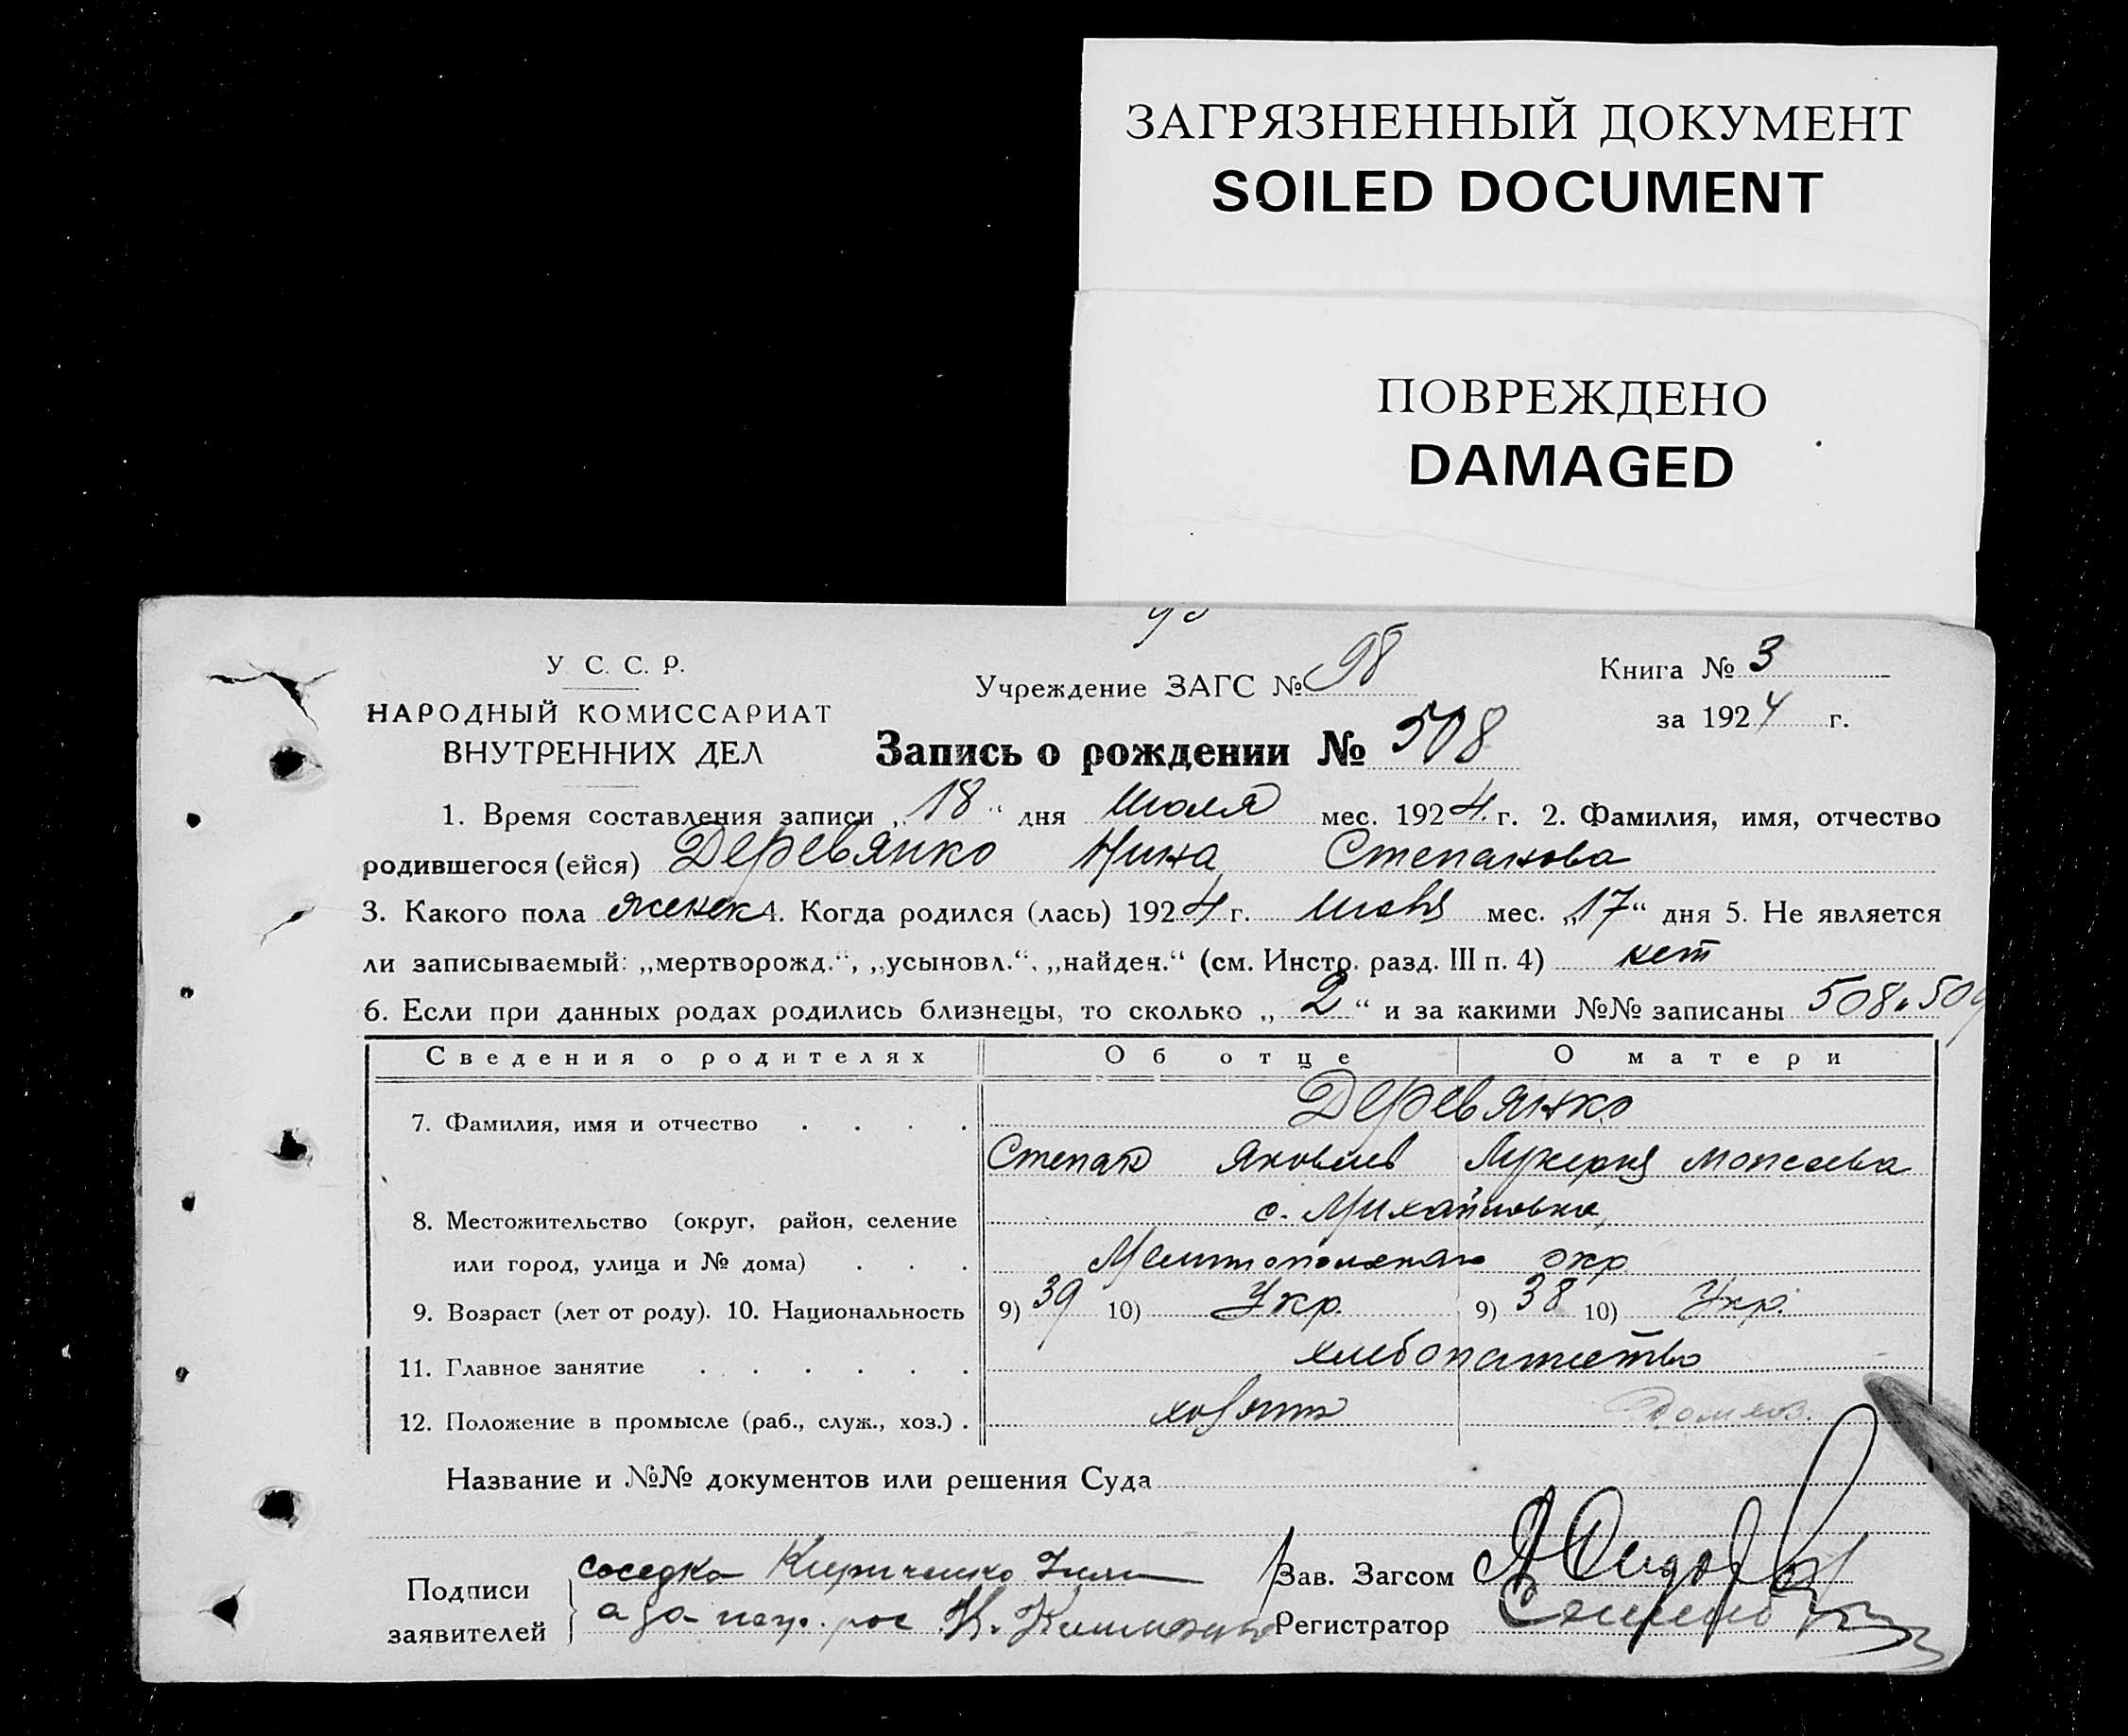 ЗАГРЯЗНЕННЫЙ ДОКУМЕНТ
SOILED DOCUMENT
ПОВРЕЖДЕНО
DAMAGED
У С. С. Р.
НАРОДНЫЙ КОМИССАРИАТ
ВНУТРЕННИХ ДЕЛ
Учреждение ЗАГС № 98
Книга № 3
за 1924 г.
Запись о рождении № 508
1. Время составления записи „18“ дня Июля мес. 1924 г. 2. Фамилия, имя, отчество
родившегося (ейся) Деревянко Нина Степанова
3. Какого пола женск 4. Когда родился (лась) 1924 г. мес. „17“ дня 5. Не является
ли записываемый: „мертворожд.“, „усыновл.“, „найден.“ (см. Инстр. разд. III п. 4) нет
6. Если при данных родах родились близнецы, то сколько „2“ и за какими №№ записаны 508 и 509
Сведения о родителях Об отце О матери
7. Фамилия, имя и отчество . . . . Деревянко
Степан Яковлев Лукерия Моисеева
8. Местожительство (округ, район, селение с. Михайловка,
или город, улица и № дома) . . . Мелитопольскаго окр
9. Возраст (лет от роду). 10. Национальность 9) 39 10) Укр. 9) 38 10) Укр.
11. Главное занятие . . . . . . хлебопашество
12. Положение в промысле (раб., служ., хоз.) . хозяин Домхоз.
Название и №№ документов или решения Суда
Подписи заявителей соседка Кириченко
а за негр. рос К.
Зав. Загсом А Сидоров
Регистратор